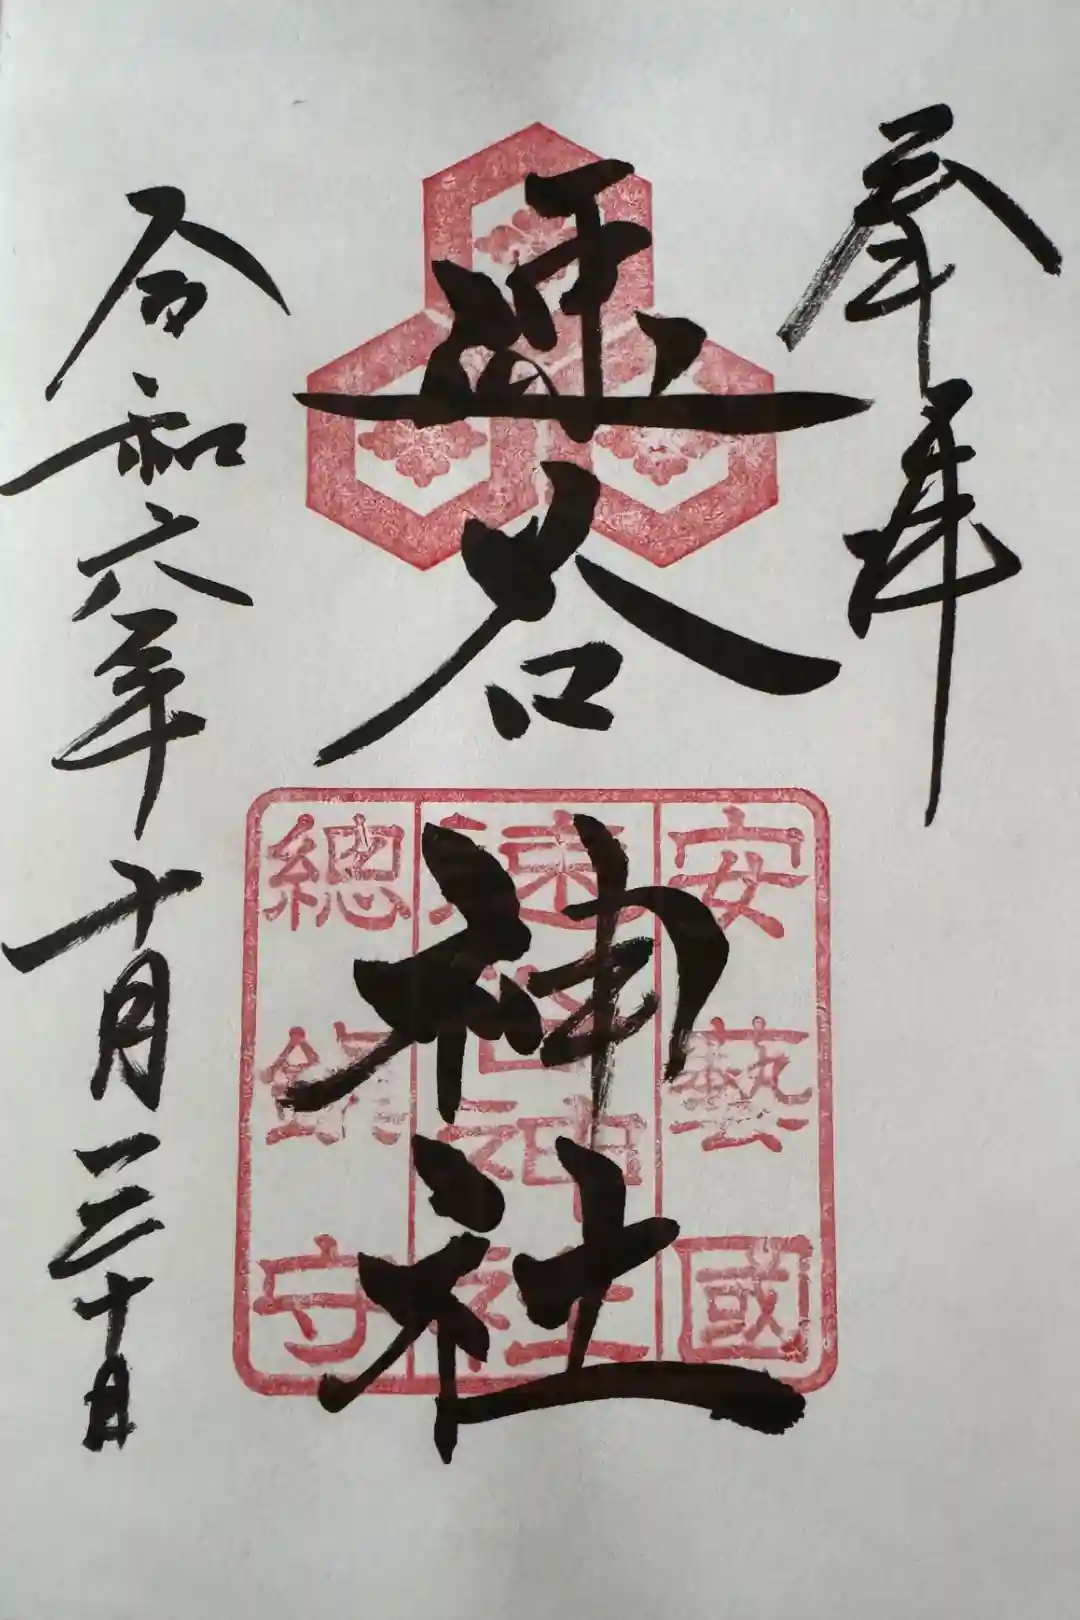 奉拝
速谷神社
安藝國
速谷神社
總鎮守
令和六年十月三十日